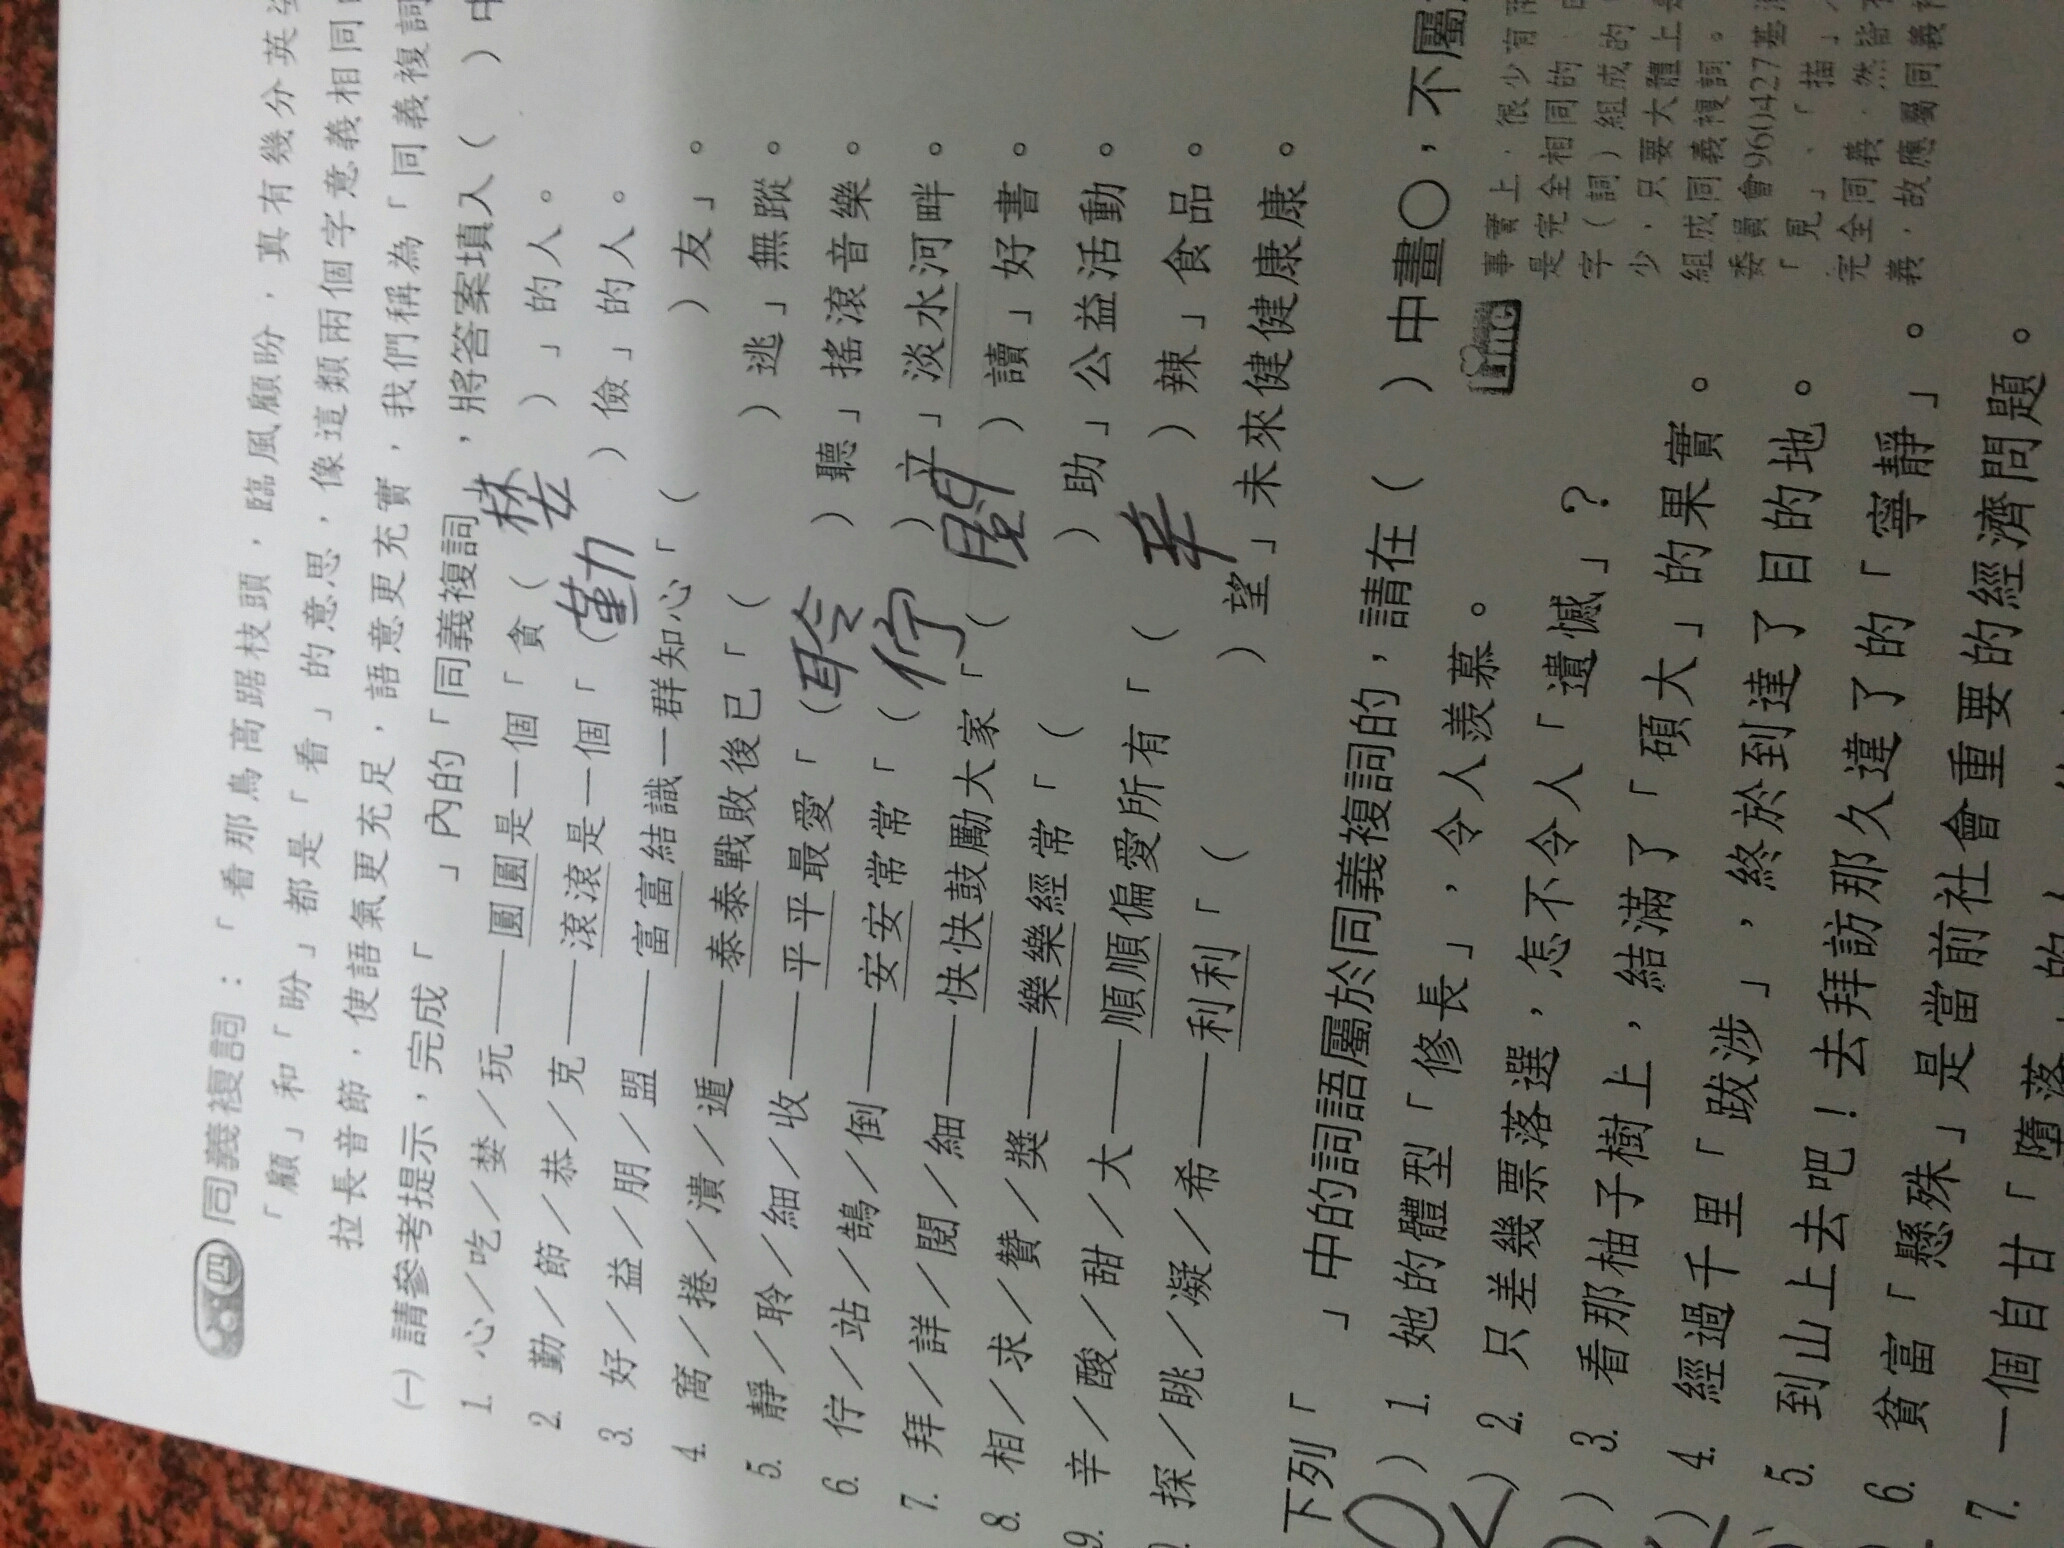 四 同義複詞：「看那鳥高踞枝頭，臨風顧盼，真有幾分英姿
「顧」和「盼」都是「看」的意思，像這類兩個字意義相同
拉長音節，使語氣更充足，語意更充實，我們稱為「同義複詞
㈠請參考提示，完成「　」內的「同義複詞」，將答案填入（　）中
1. 心／吃／婪／玩——圓圓是一個「貪（婪）」的人。
2. 勤／節／恭／克——滾滾是一個「（勤）儉」的人。
3. 好／益／朋／盟——富富結識一群知心「（　）友」。
4. 窩／捲／潰／遁——泰泰戰敗後已「（　）逃」無蹤。
5. 靜／聆／細／收——平平最愛「（聆）聽」搖滾音樂。
6. 佇／站／鵠／倒——安安常常「（佇）立」淡水河畔。
7. 拜／詳／閱／細——快快鼓勵大家「（閱）讀」好書。
8. 相／求／贊／獎——樂樂經常「（　）助」公益活動。
9. 辛／酸／甜／大——順順偏愛所有「（辛）辣」食品。
探／眺／凝／希——利利「（　）望」未來健健康康。
下列「　」中的詞語屬於同義複詞的，請在（　）中畫○，不屬
）1. 她的體型「修長」，令人羨慕。
）2. 只差幾票落選，怎不令人「遺憾」？
）3. 看那柚子樹上，結滿了「碩大」的果實。
）4. 經過千里「跋涉」，終於到達了目的地。
）5. 到山上去吧！去拜訪那久違了的「寧靜」。
6. 貧富「懸殊」是當前社會重要的經濟問題。
7. 一個自甘「墮落」的人
事實上，很少有兩
是完全相同的，
字（詞）組成的
少，只要大體上是
組成同義複詞。
委員會960427基
「覓」、「描」
完全同義，然皆
義，故應屬同義複